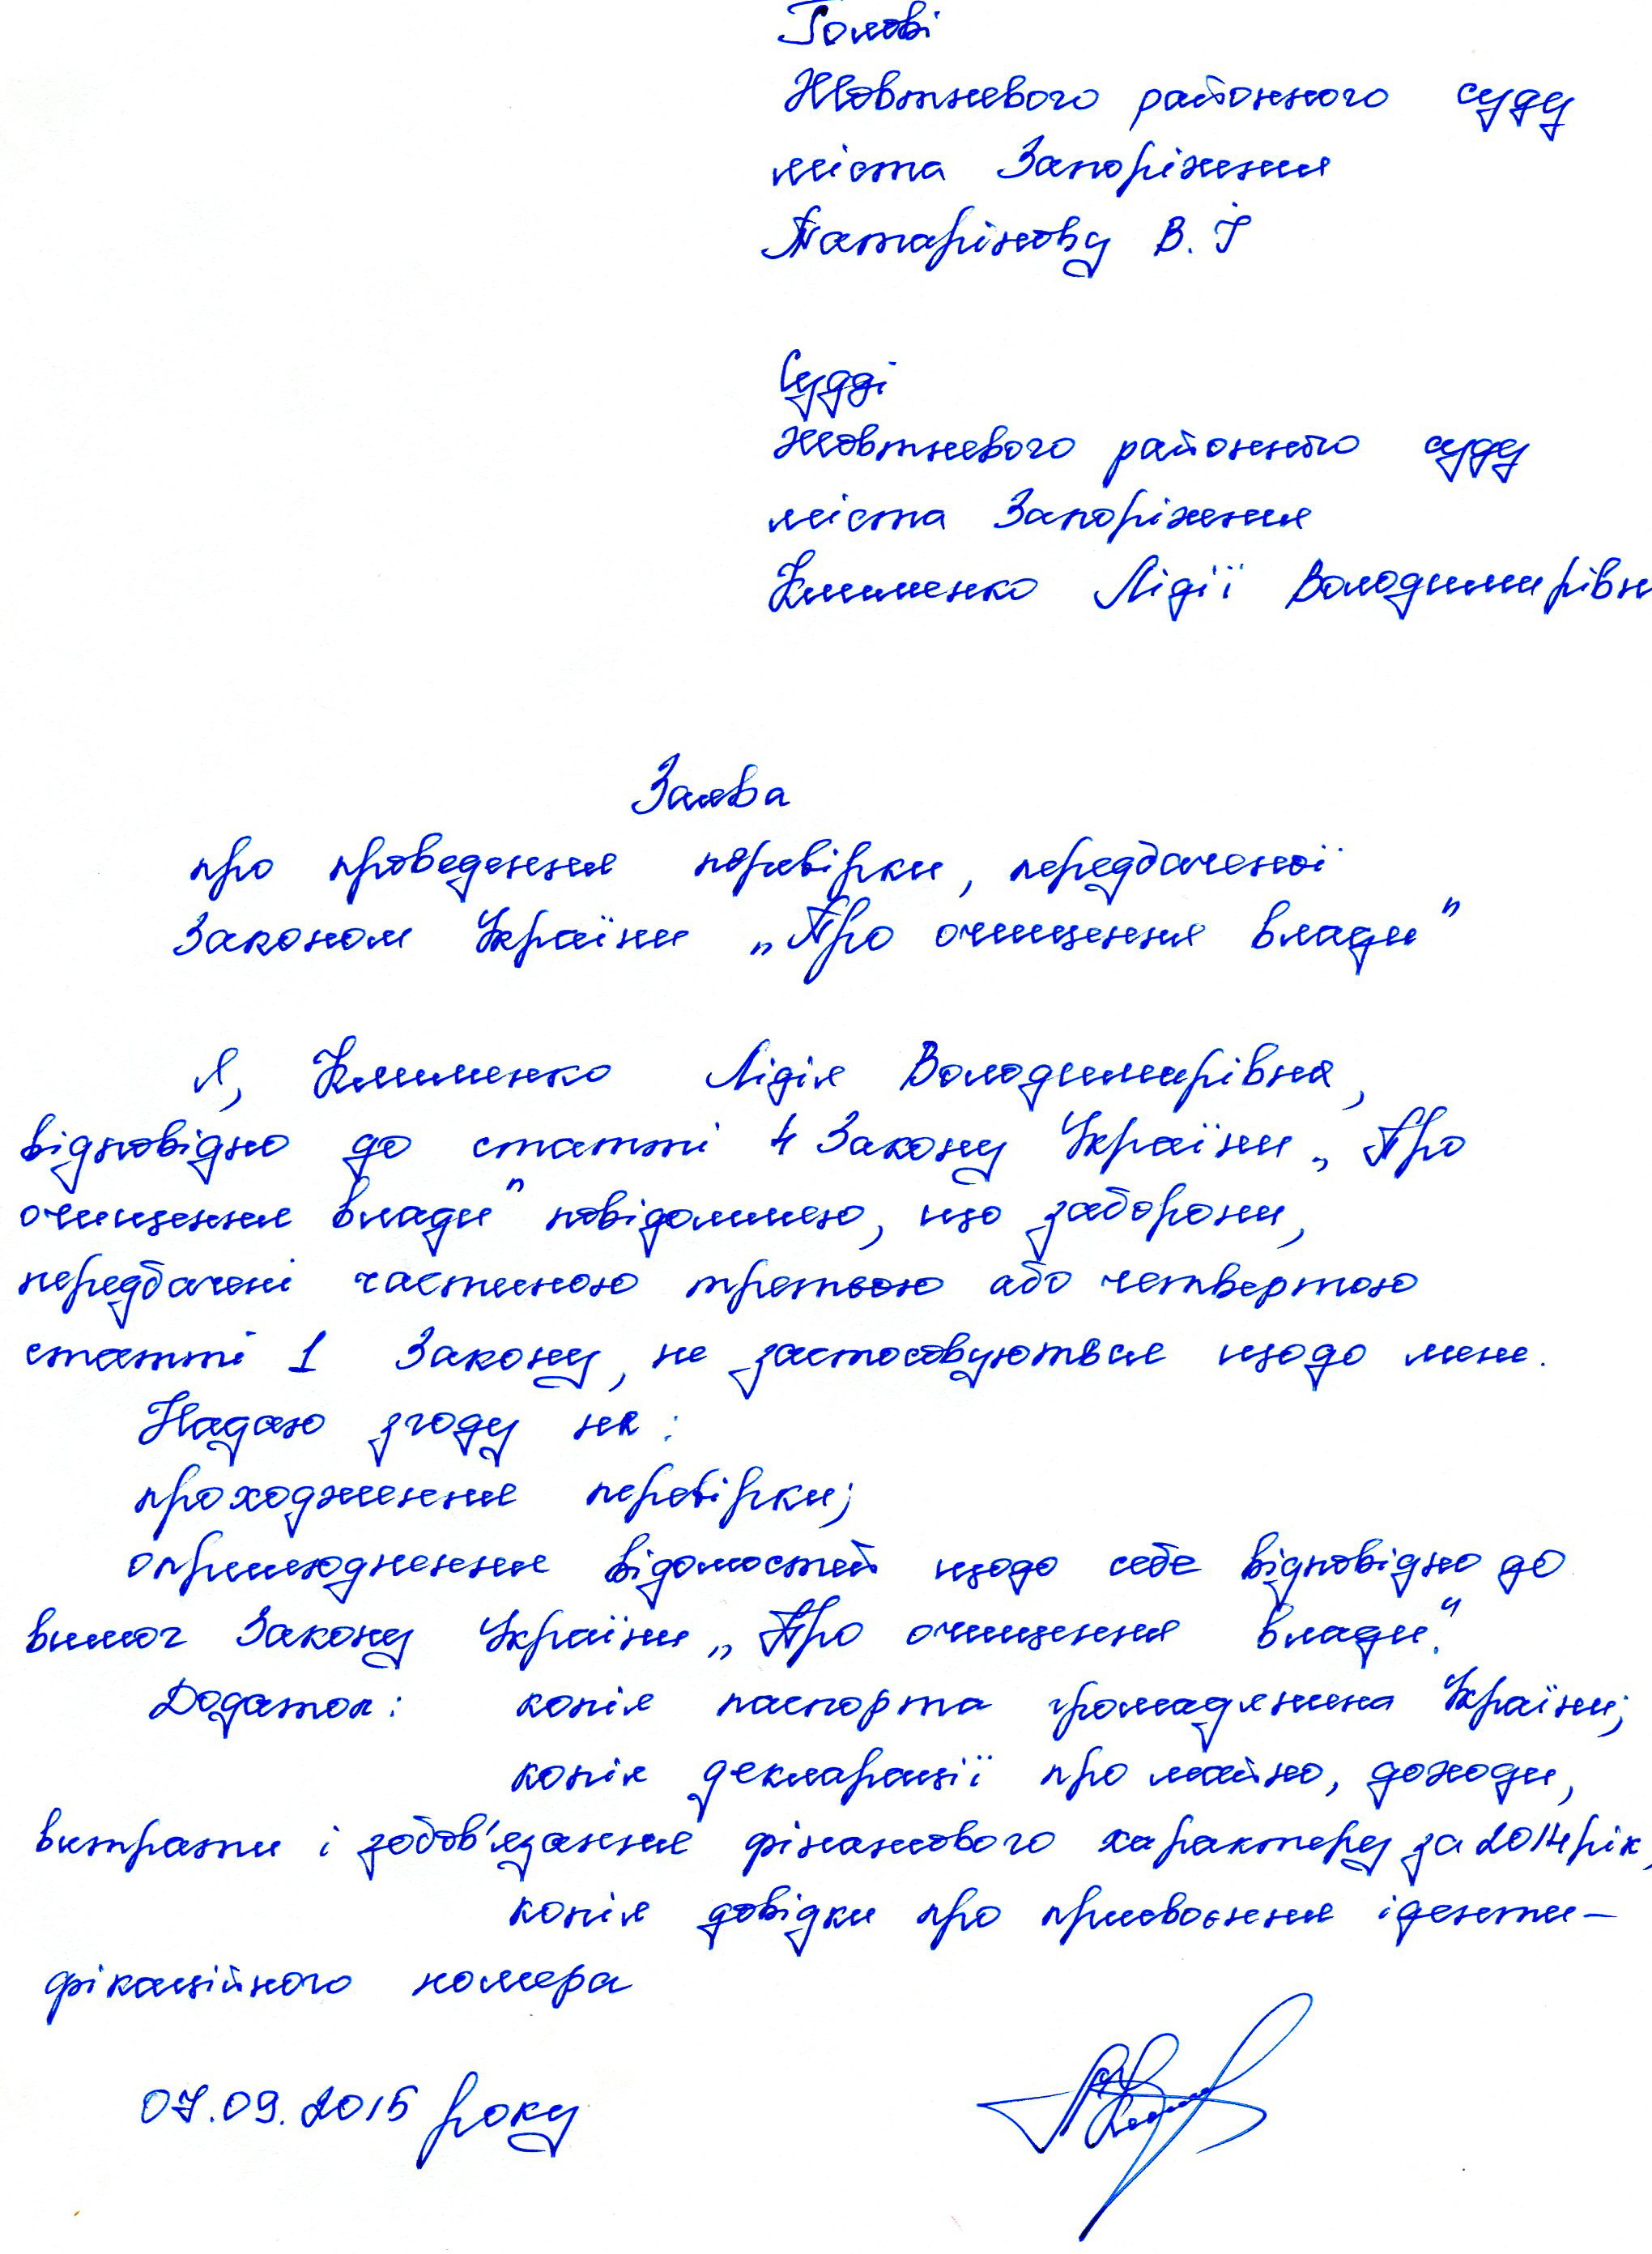 Голові
Жовтневого районного суду
міста Запоріжжя
Татарінову В. І
Судді
Жовтневого районного суду
міста Запоріжжя
Клименко Лідії Володимирівн
Заява
про проведення перевірки, передбаченої
Законом України „Про очищення влади"
Я, Клименко Лідія Володимирівна,
відповідно до статті 4 Закону України „Про
очищення влади" повідомляю, що заборони,
передбачені частиною третьою або четвертою
статті 1 Закону, не застосовуються щодо мене.
Надаю згоду на:
проходження перевірки;
оприлюднення відомостей щодо себе відповідно до
вимог Закону України „Про очищення влади."
Додаток: копія паспорта громадянина України;
копія декларації про майно, доходи,
витрати і зобов'язання фінансового характеру за 2014 рік,
копія довідки про присвоєння іденти-
фікаційного номера
07.09.2015 року